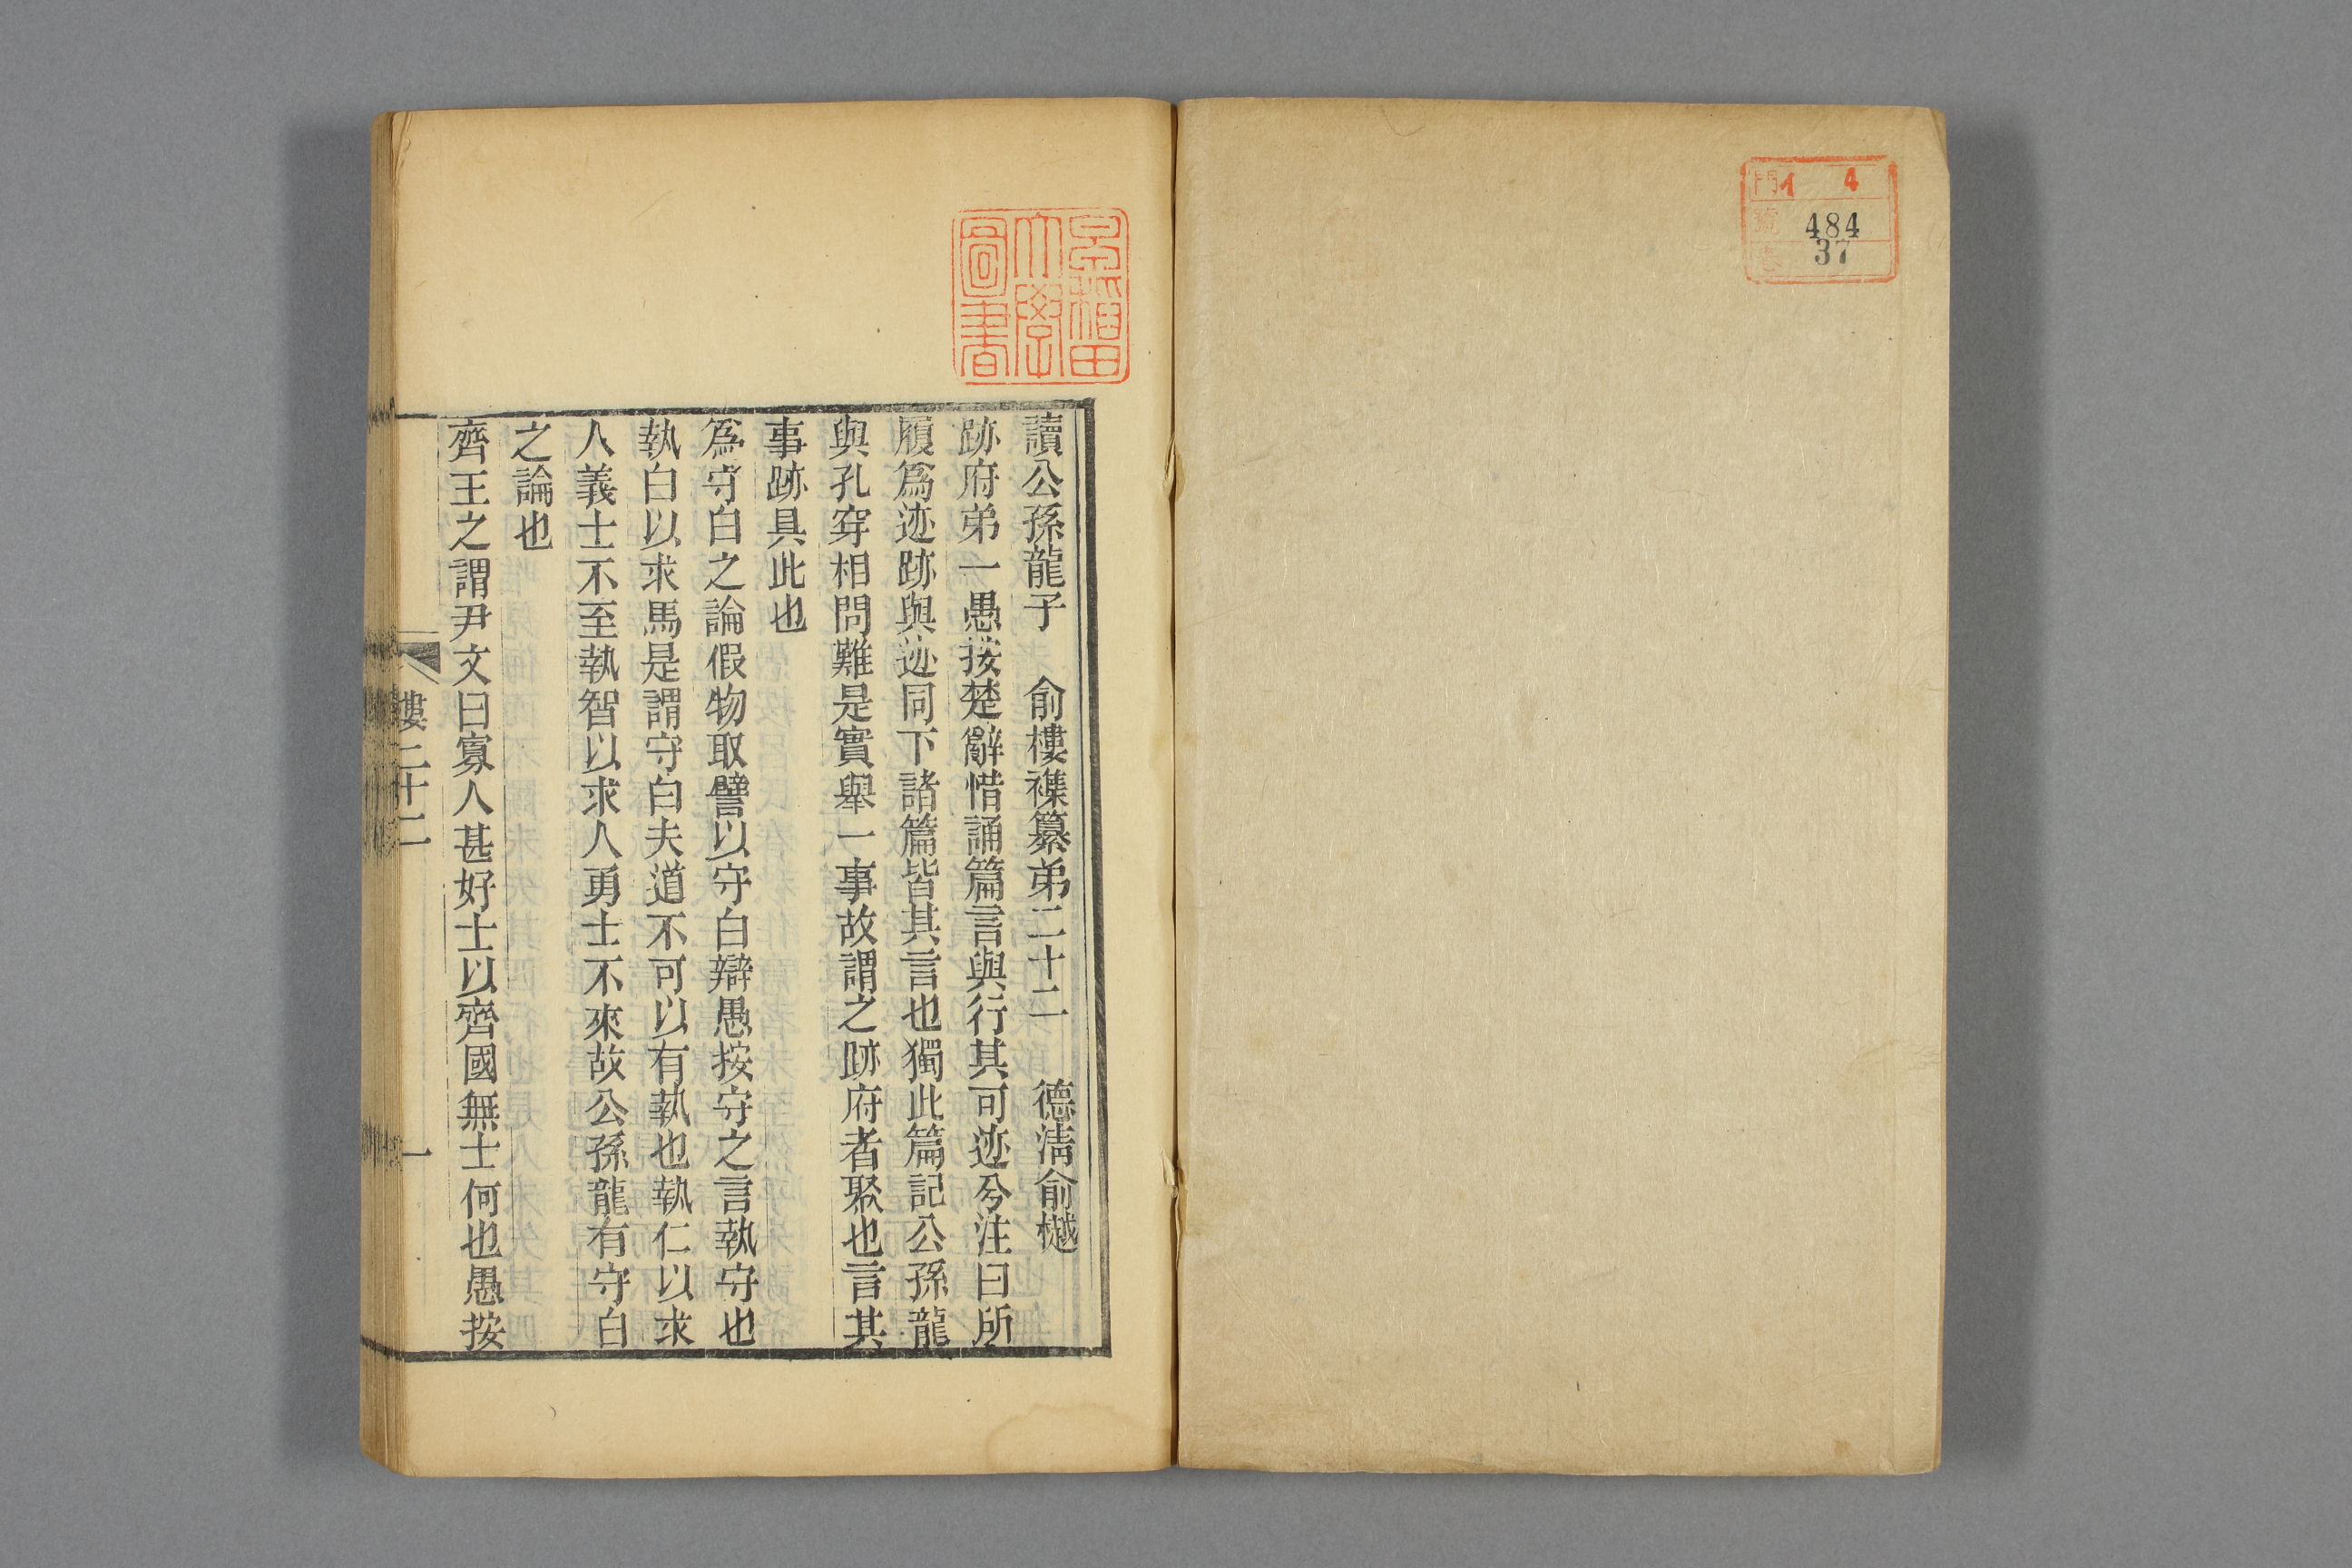 門 イ 4
號 484
卷 37
早稻田
大學
圖書
讀公孫龍子 俞樓襍纂弟二十二 德淸俞樾
跡府弟一愚按楚辭惜誦篇言與行其可迹兮注曰所
履爲迹跡與迹同下諸篇皆其言也獨此篇記公孫龍
與孔穿相問難是實舉一事故謂之跡府者聚也言其
事跡具此也
爲守白之論假物取譬以守白辯愚按守之言執守也
執白以求馬是謂守白夫道不可以有執也執仁以求
人義士不至執智以求人勇士不來故公孫龍有守白
之論也
齊王之謂尹文曰寡人甚好士以齊國無士何也愚按
樓二十二
一